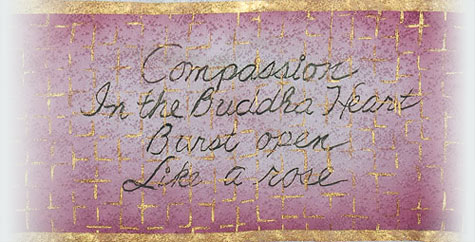 Compassion
In the Buddha Heart
Burst open
Like a rose